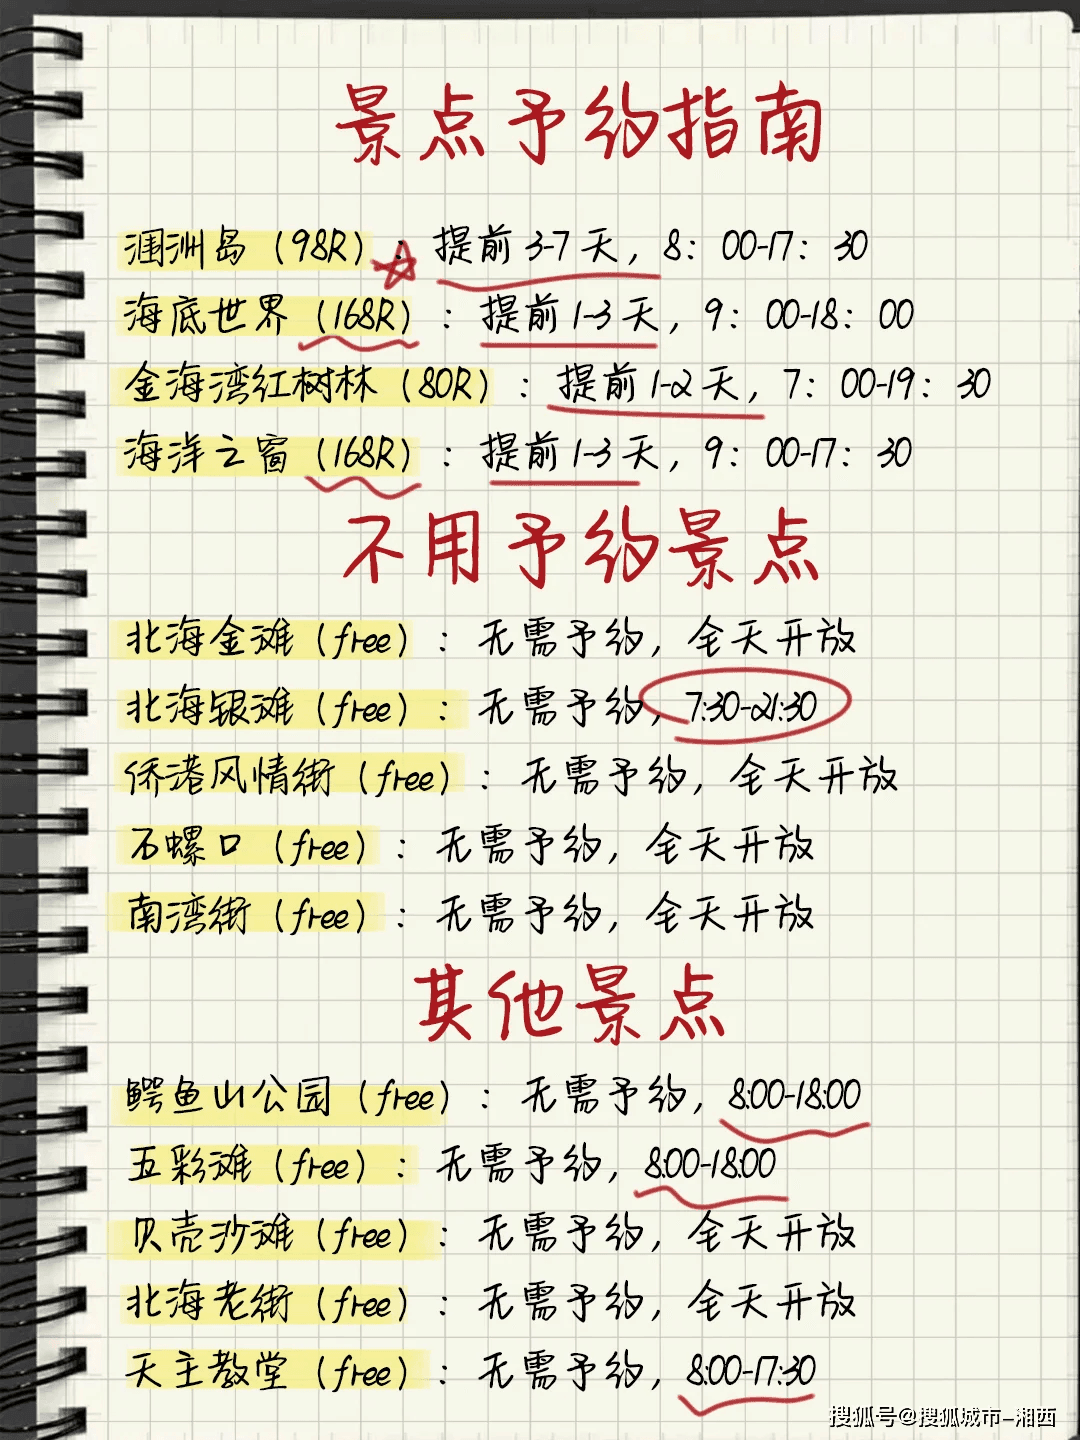 景点予约指南
涠洲岛（98R）：提前3-7天，8：00-17：30
海底世界（168R）：提前1-3天，9：00-18：00
金海湾红树林（80R）：提前1-2天，7：00-19：30
海洋之窗（168R）：提前1-3天，9：00-17：30
不用予约景点
北海金滩（free）：无需予约，全天开放
北海银滩（free）：无需予约，7:30-21:30
侨港风情街（free）：无需予约，全天开放
石螺口（free）：无需予约，全天开放
南湾街（free）：无需予约，全天开放
其他景点
鳄鱼山公园（free）：无需予约，8:00-18:00
五彩滩（free）：无需予约，8:00-18:00
贝壳沙滩（free）：无需予约，全天开放
北海老街（free）：无需予约，全天开放
天主教堂（free）：无需予约，8:00-17:30
搜狐号@搜狐城市-湘西